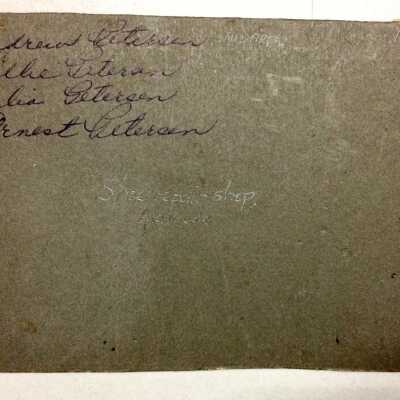 drew Petersen
llie Peteran
lia Petersen
rnest Petersen
Shoe repair shop.